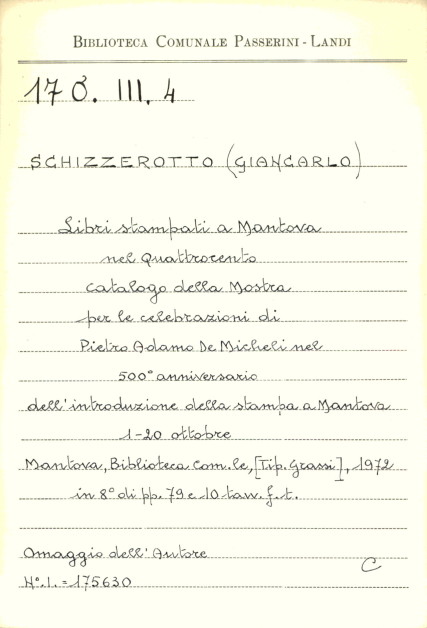 BIBLIOTECA COMUNALE PASSERINI-LANDI
17 O. III. 4
SCHIZZEROTTO (GIANCARLO)
Libri stampati a Mantova
nel Quattrocento
Catalogo della Mostra
per le celebrazioni di
Pietro Adamo De Micheli nel
500° anniversario
dell'introduzione della stampa a Mantova
1-20 ottobre
Mantova, Biblioteca Com.le, [Tip. Grassi], 1972
in 8° di pp. 79 e 10 tav. f. t.
Omaggio dell'Autore
C
N°. I. = 175630